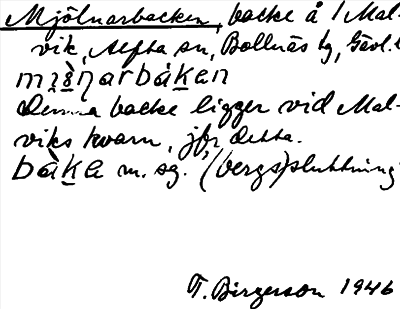 Mjölnarbacken, backe å 1 Mal-
vik, Alfta sn, Bollnäs tg, Gävl. l
Denna backe ligger vid Mal-
viks kvarn, jfr detta.
m. sg. (bergs)sluttning
T. Birgerson 1946